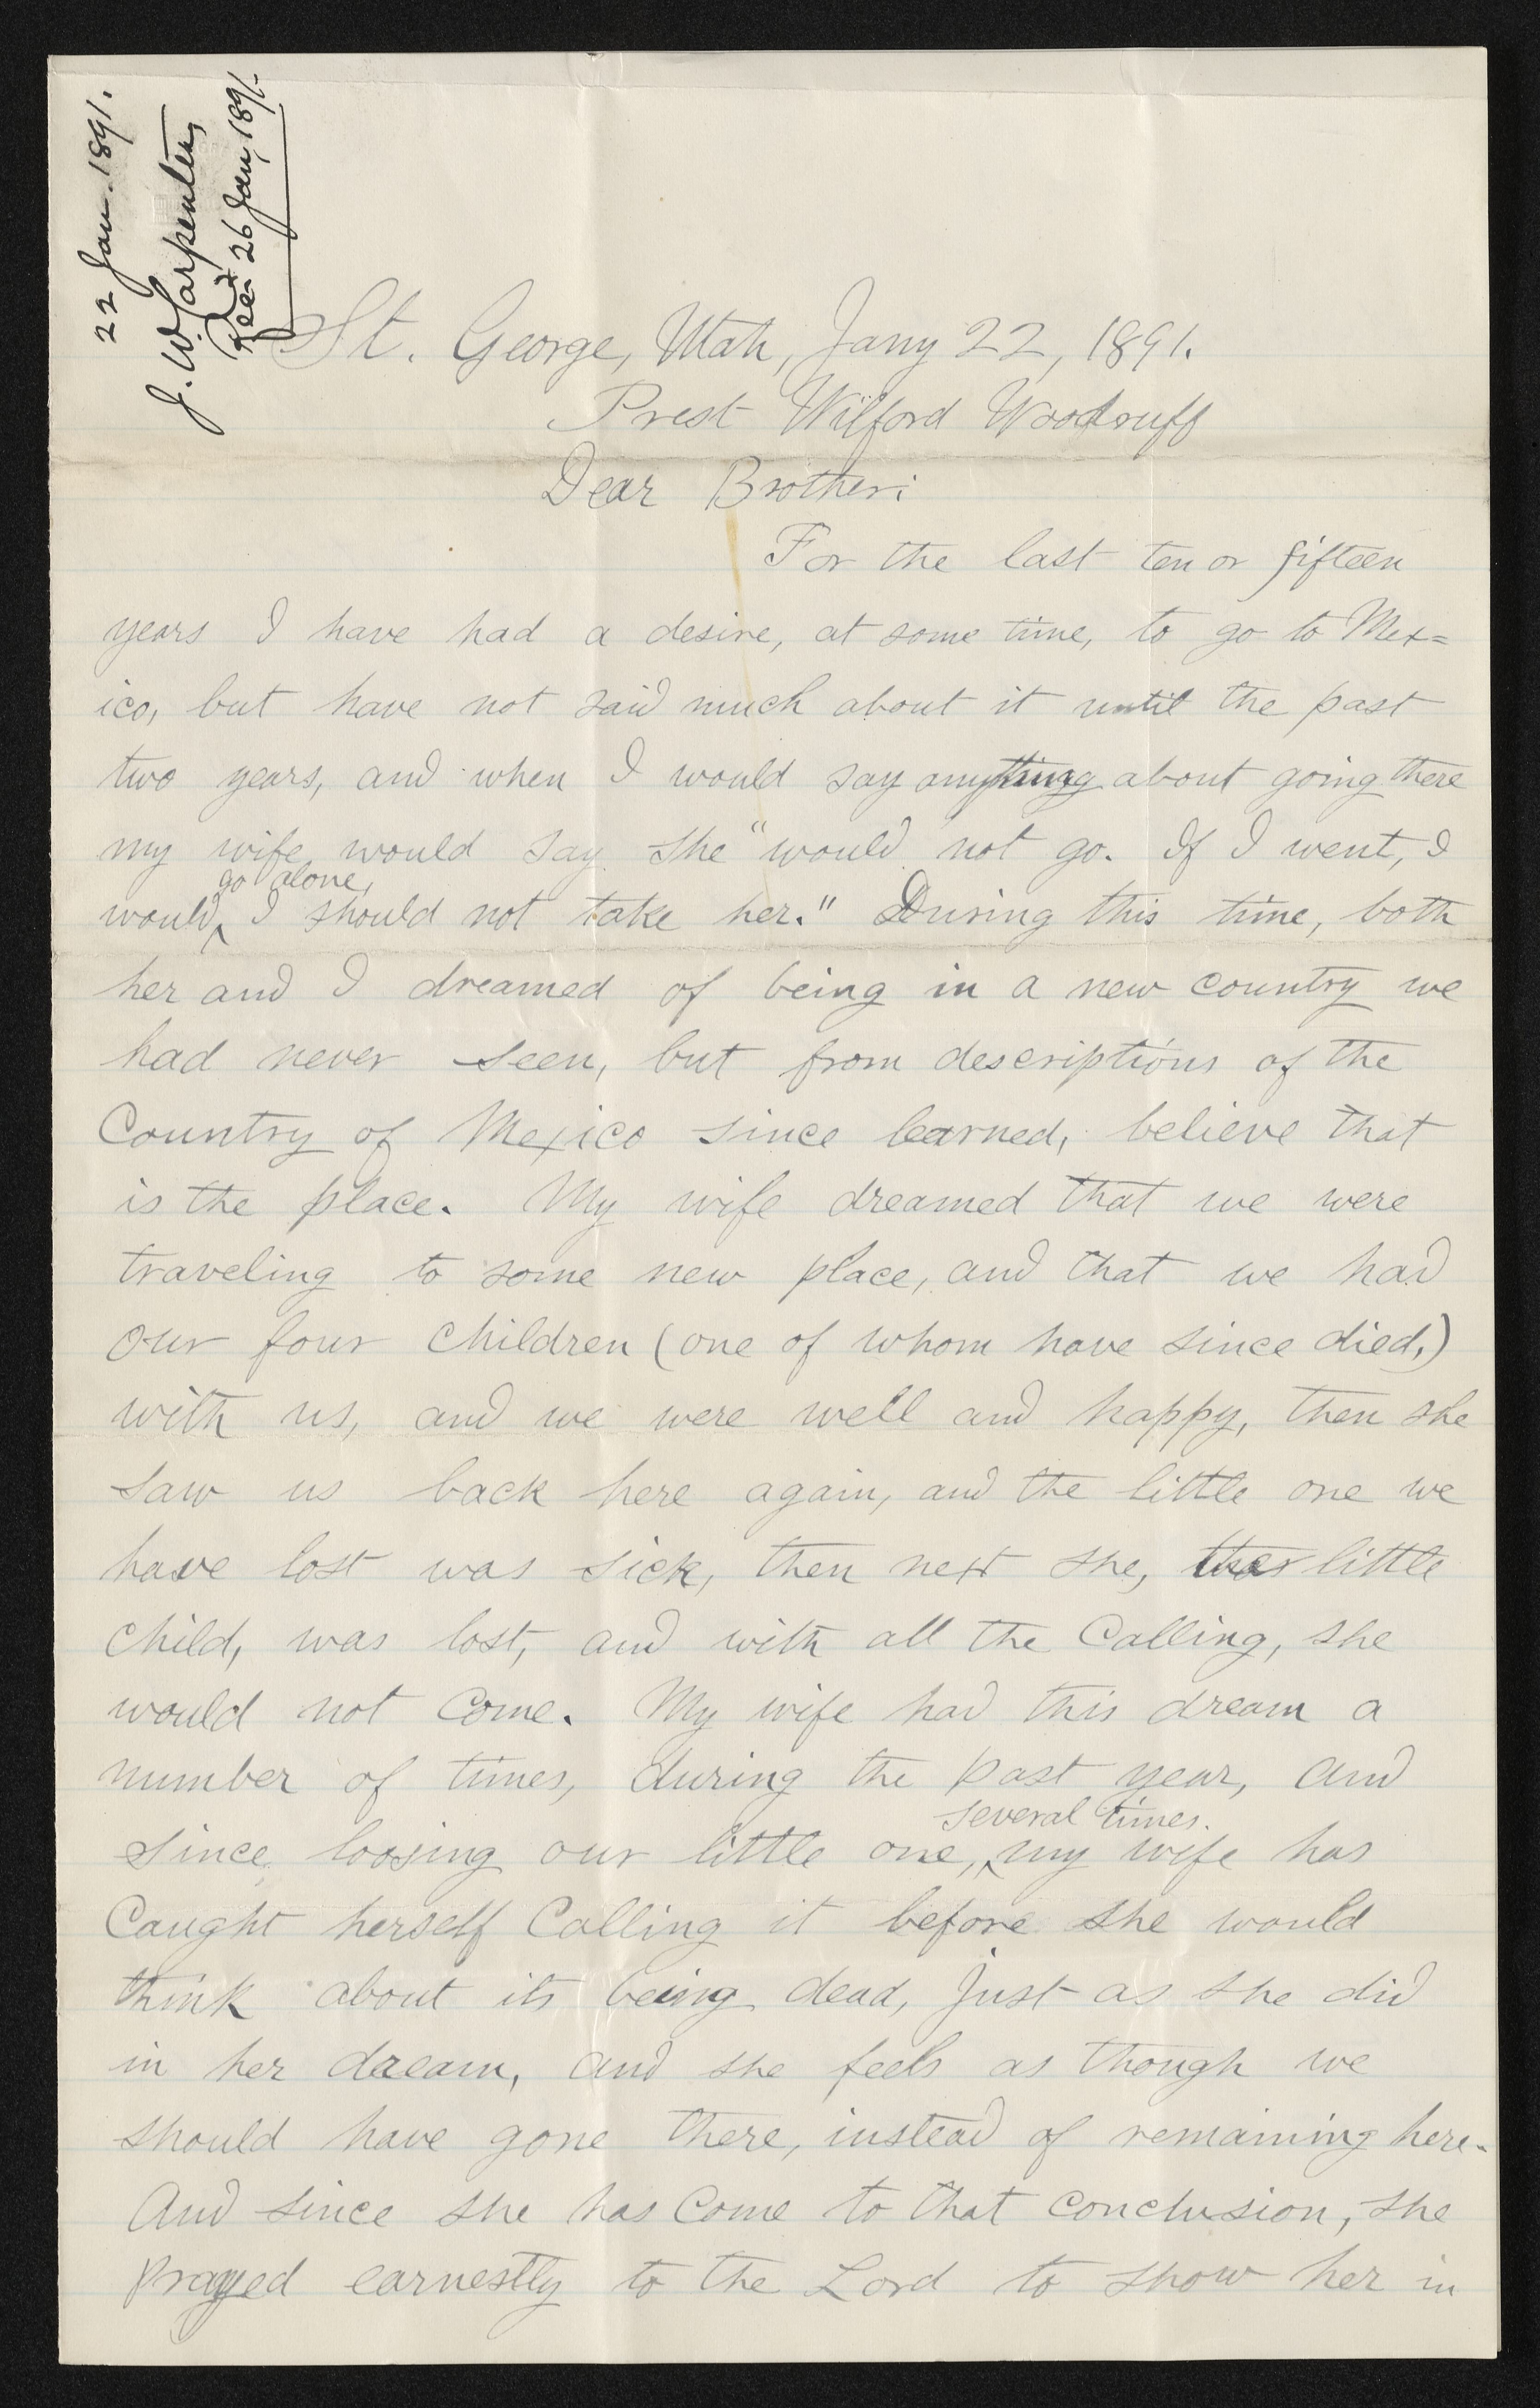 22 Jan. 1891.
J. W. Carpenter,
Rec'd 26 Jan, 1891.
St. George, Utah, Jany 22, 1891.
Prest Wilford Woodruff
Dear Brother:
For the last ten or fifteen
years I have had a desire, at some time, to go to Mex=
ico, but have not said much about it until the past
two years, and when I would say anything about going there
my wife would say she "would not go. If I went, I
go alone,
would, I should not take her." During this time, both
her and I dreamed of being in a new country we
had never seen, but from descriptions of the
Country of Mexico since learned, believe that
is the place. My wife dreamed that we were
traveling to some new place, and that we had
our four children (one of whom have since died,)
with us, and we were well and happy, then she
saw us back here again, and the little one we
have lost was sick, then next she, little
child, was lost, and with all the Calling, she
would not Come. My wife had this dream a
number of times, during the past year, and
several times.
since loosing our little one, my wife has
Caught herself Calling it before she would
think about its being dead, just as she did
in her dream, and she feels as though we
should have gone there, instead of remaining here.
And since she has Come to that conclusion, she
prayed earnestly to the Lord to show her in